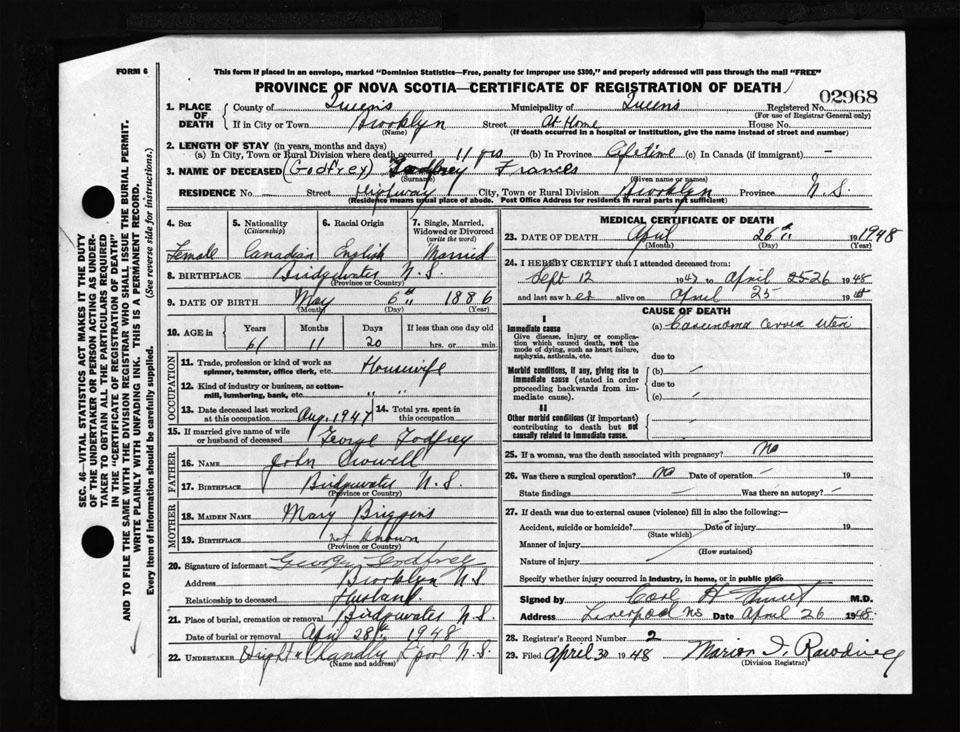 FORM 6
This form if placed in an envelope, marked "Dominion Statistics—Free, penalty for improper use $300," and properly addressed will pass through the mail "FREE"
PROVINCE OF NOVA SCOTIA—CERTIFICATE OF REGISTRATION OF DEATH
02968
1. PLACE OF DEATH
County of Queens Municipality of Queens Registered No.
(For use of Registrar General only)
If in City or Town Brooklyn Street At Home House No.
(Name) (If death occurred in a hospital or institution, give the name instead of street and number)
2. LENGTH OF STAY (in years, months and days)
(a) In City, Town or Rural Division where death occurred 11 yrs (b) In Province Lifetime (c) In Canada (if immigrant) —
3. NAME OF DECEASED (Godfrey) Godfrey Frances
(Surname) (Given name or names)
RESIDENCE No. Street Highway City, Town or Rural Division Brooklyn Province N.S.
(Residence means usual place of abode. Post Office Address for residents in rural parts not sufficient)
4. Sex
Female
5. Nationality
(Citizenship)
Canadian
6. Racial Origin
English
7. Single, Married, Widowed or Divorced
(write the word)
Married
8. BIRTHPLACE Bridgewater N.S.
(Province or Country)
9. DATE OF BIRTH May 6th 1886
(Month) (Day) (Year)
10. AGE in Years Months Days If less than one day old
61 11 20 hrs. or min.
OCCUPATION
11. Trade, profession or kind of work as spinner, teamster, office clerk, etc. Housewife
12. Kind of industry or business, as cotton-mill, lumbering, bank, etc. " "
13. Date deceased last worked at this occupation Aug. 1947 14. Total yrs. spent in this occupation
15. If married give name of wife or husband of deceased George Godfrey
FATHER
16. NAME John Crowell
17. BIRTHPLACE Bridgewater N.S.
(Province or Country)
MOTHER
18. MAIDEN NAME Mary Briggins
19. BIRTHPLACE not known
(Province or Country)
20. Signature of informant George Godfrey
Address Brooklyn N.S.
Relationship to deceased Husband.
21. Place of burial, cremation or removal Bridgewater N.S.
Date of burial or removal April 28th 1948
22. UNDERTAKER Wright & Chandler L'pool N.S.
(Name and address)
MEDICAL CERTIFICATE OF DEATH
23. DATE OF DEATH April 26th 1948
(Month) (Day) (Year)
24. I HEREBY CERTIFY that I attended deceased from:
Sept 12 1947 to April 25-26 1948
and last saw her alive on April 25 1948
CAUSE OF DEATH
I
Immediate cause
Give disease, injury or complication which caused death, not the mode of dying, such as heart failure, asphyxia, asthenia, etc.
(a) Carcinoma Cervix uteri
due to
Morbid conditions, if any, giving rise to immediate cause (stated in order proceeding backwards from immediate cause).
(b)
due to
(c)
II
Other morbid conditions (if important) contributing to death but not causally related to immediate cause.
25. If a woman, was the death associated with pregnancy? No
26. Was there a surgical operation? No Date of operation — 19
State findings — Was there an autopsy? —
27. If death was due to external causes (violence) fill in also the following:—
Accident, suicide or homicide? Date of injury 19
(State which)
Manner of injury
(How sustained)
Nature of injury
Specify whether injury occurred in industry, in home, or in public place
Signed by M.D.
Address Liverpool NS Date April 26 1948.
28. Registrar's Record Number 2
29. Filed April 30 1948 Marion
(Division Registrar)
SEC. 46—VITAL STATISTICS ACT MAKES IT THE DUTY
OF THE UNDERTAKER OR PERSON ACTING AS UNDER-
TAKER TO OBTAIN ALL THE PARTICULARS REQUIRED
IN THE "CERTIFICATE OF REGISTRATION OF DEATH"
AND TO FILE THE SAME WITH THE DIVISION REGISTRAR WHO SHALL ISSUE THE BURIAL PERMIT.
WRITE PLAINLY WITH UNFADING INK. THIS IS A PERMANENT RECORD.
Every item of information should be carefully supplied. (See reverse side for instructions.)